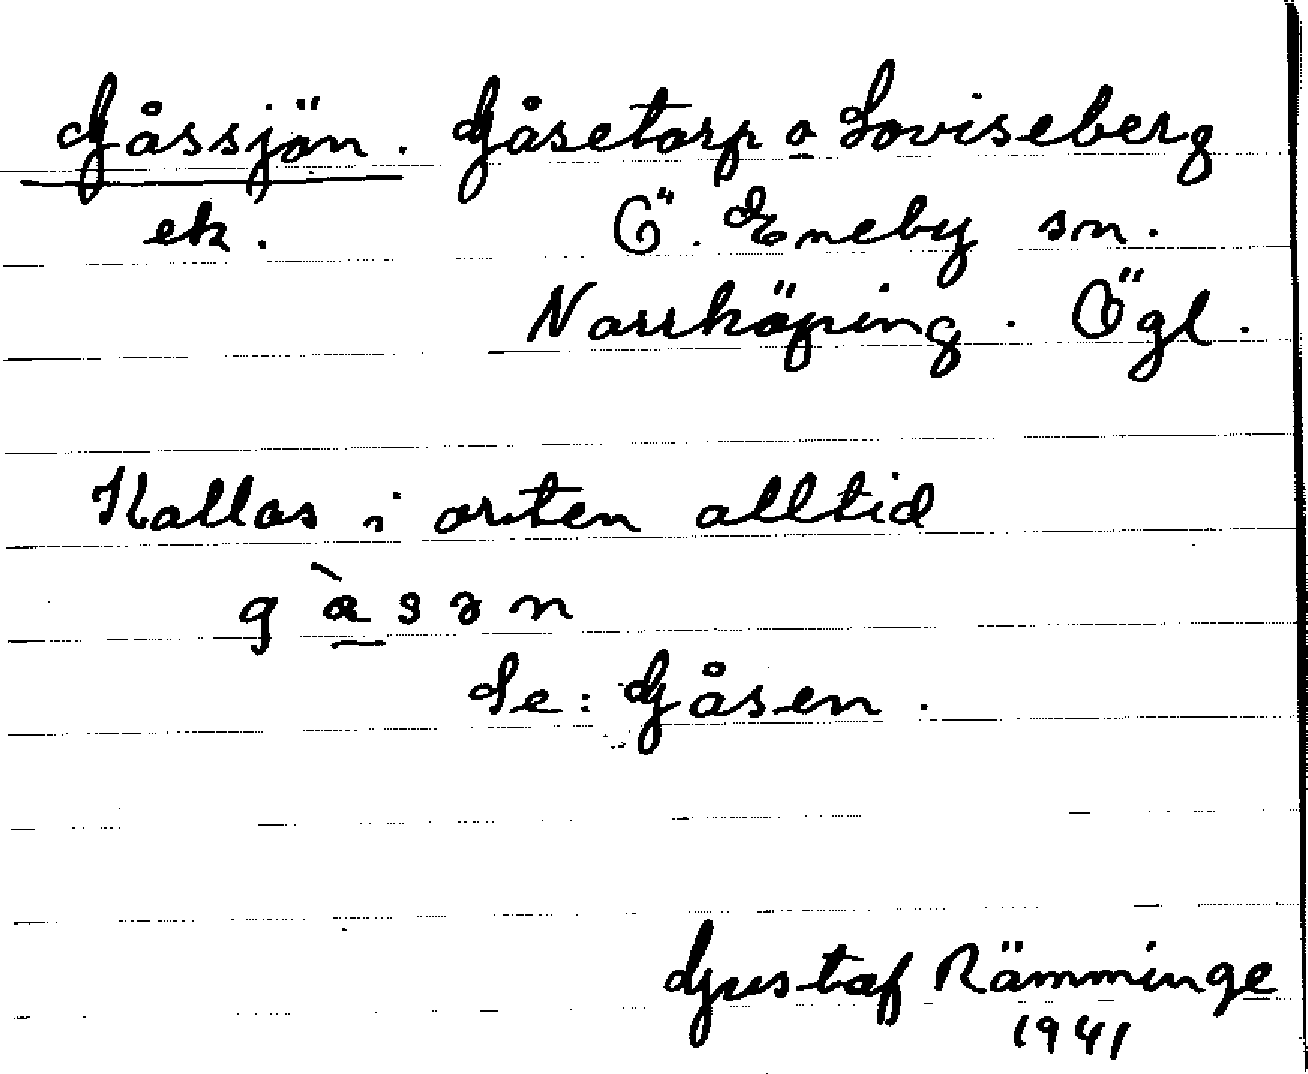 Gåssjön. Gåsetorp o Loviseberg
ek. Ö. Eneby sn.
Norrköping. Ögl.
Kallas i orten alltid
g à̱ s ə n
Se: Gåsen.
Gustaf Rämminge
1941